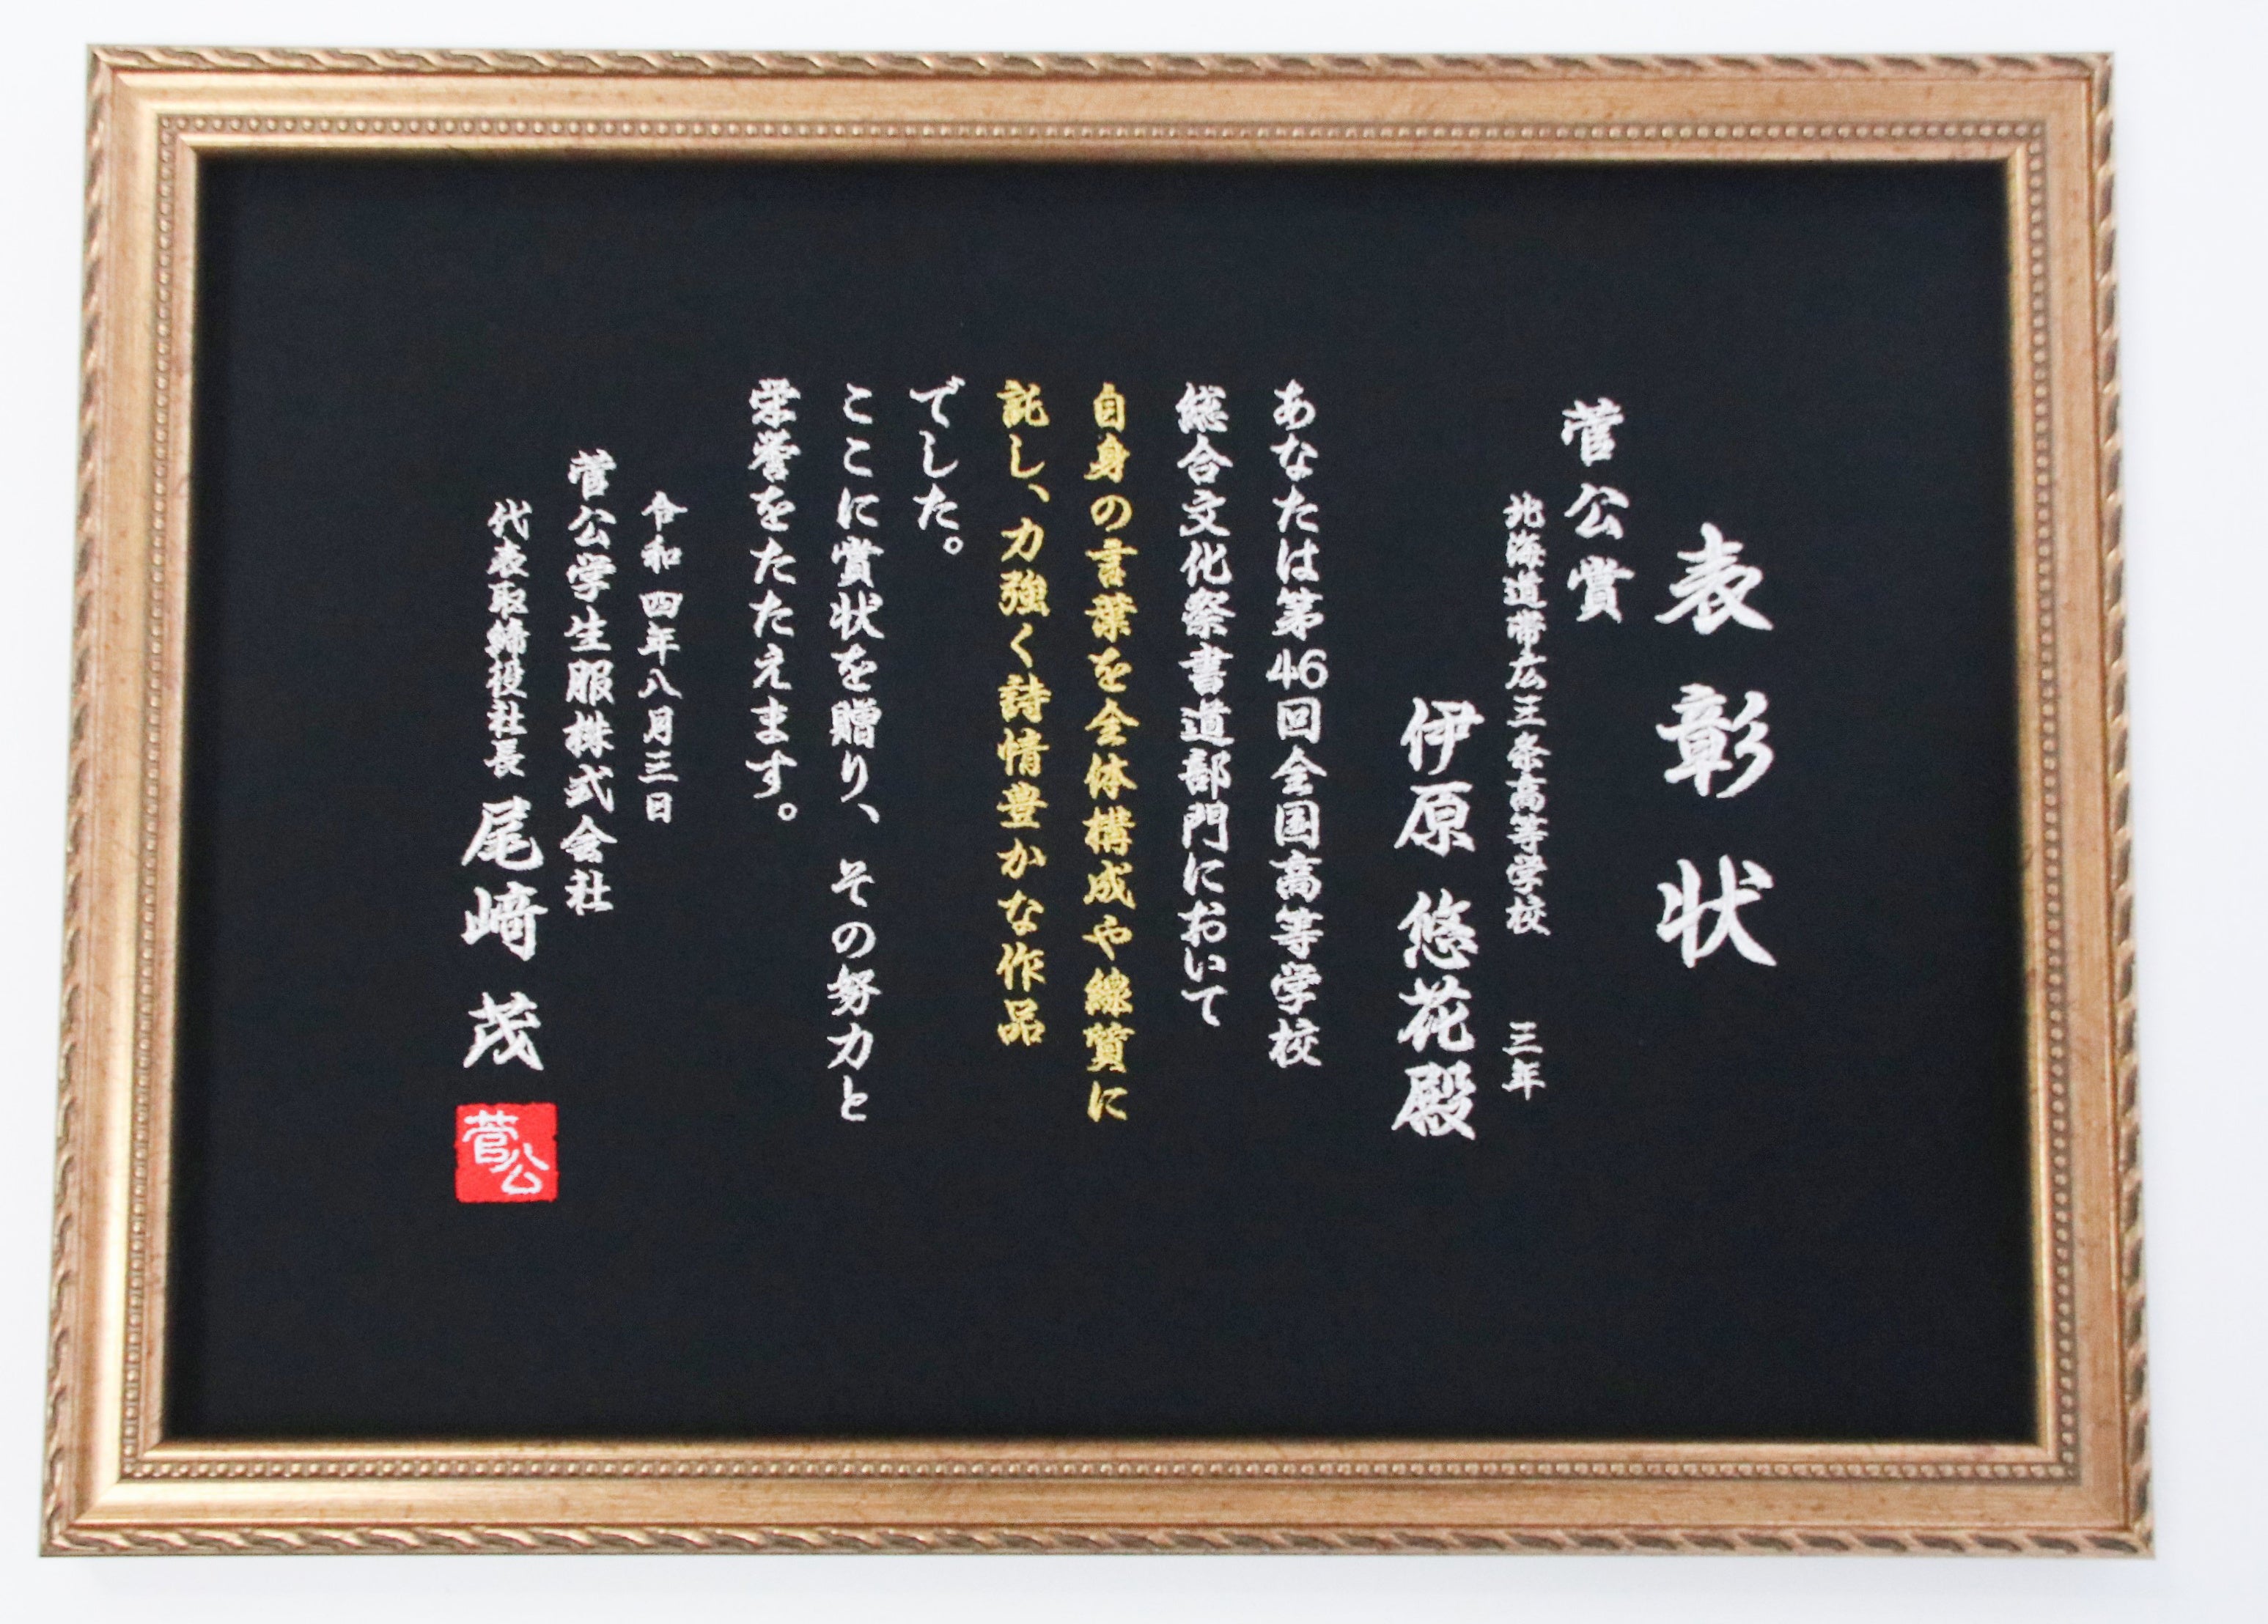 表彰状
菅公賞
北海道帯広三条高等学校 三年
伊原 悠花 殿
あなたは第46回全国高等学校
総合文化祭書道部門において
自身の言葉を全体構成や線質に
託し、力強く詩情豊かな作品
でした。
ここに賞状を贈り、その努力と
栄誉をたたえます。
令和四年八月三日
菅公学生服株式会社
代表取締役社長 尾﨑 茂
菅公